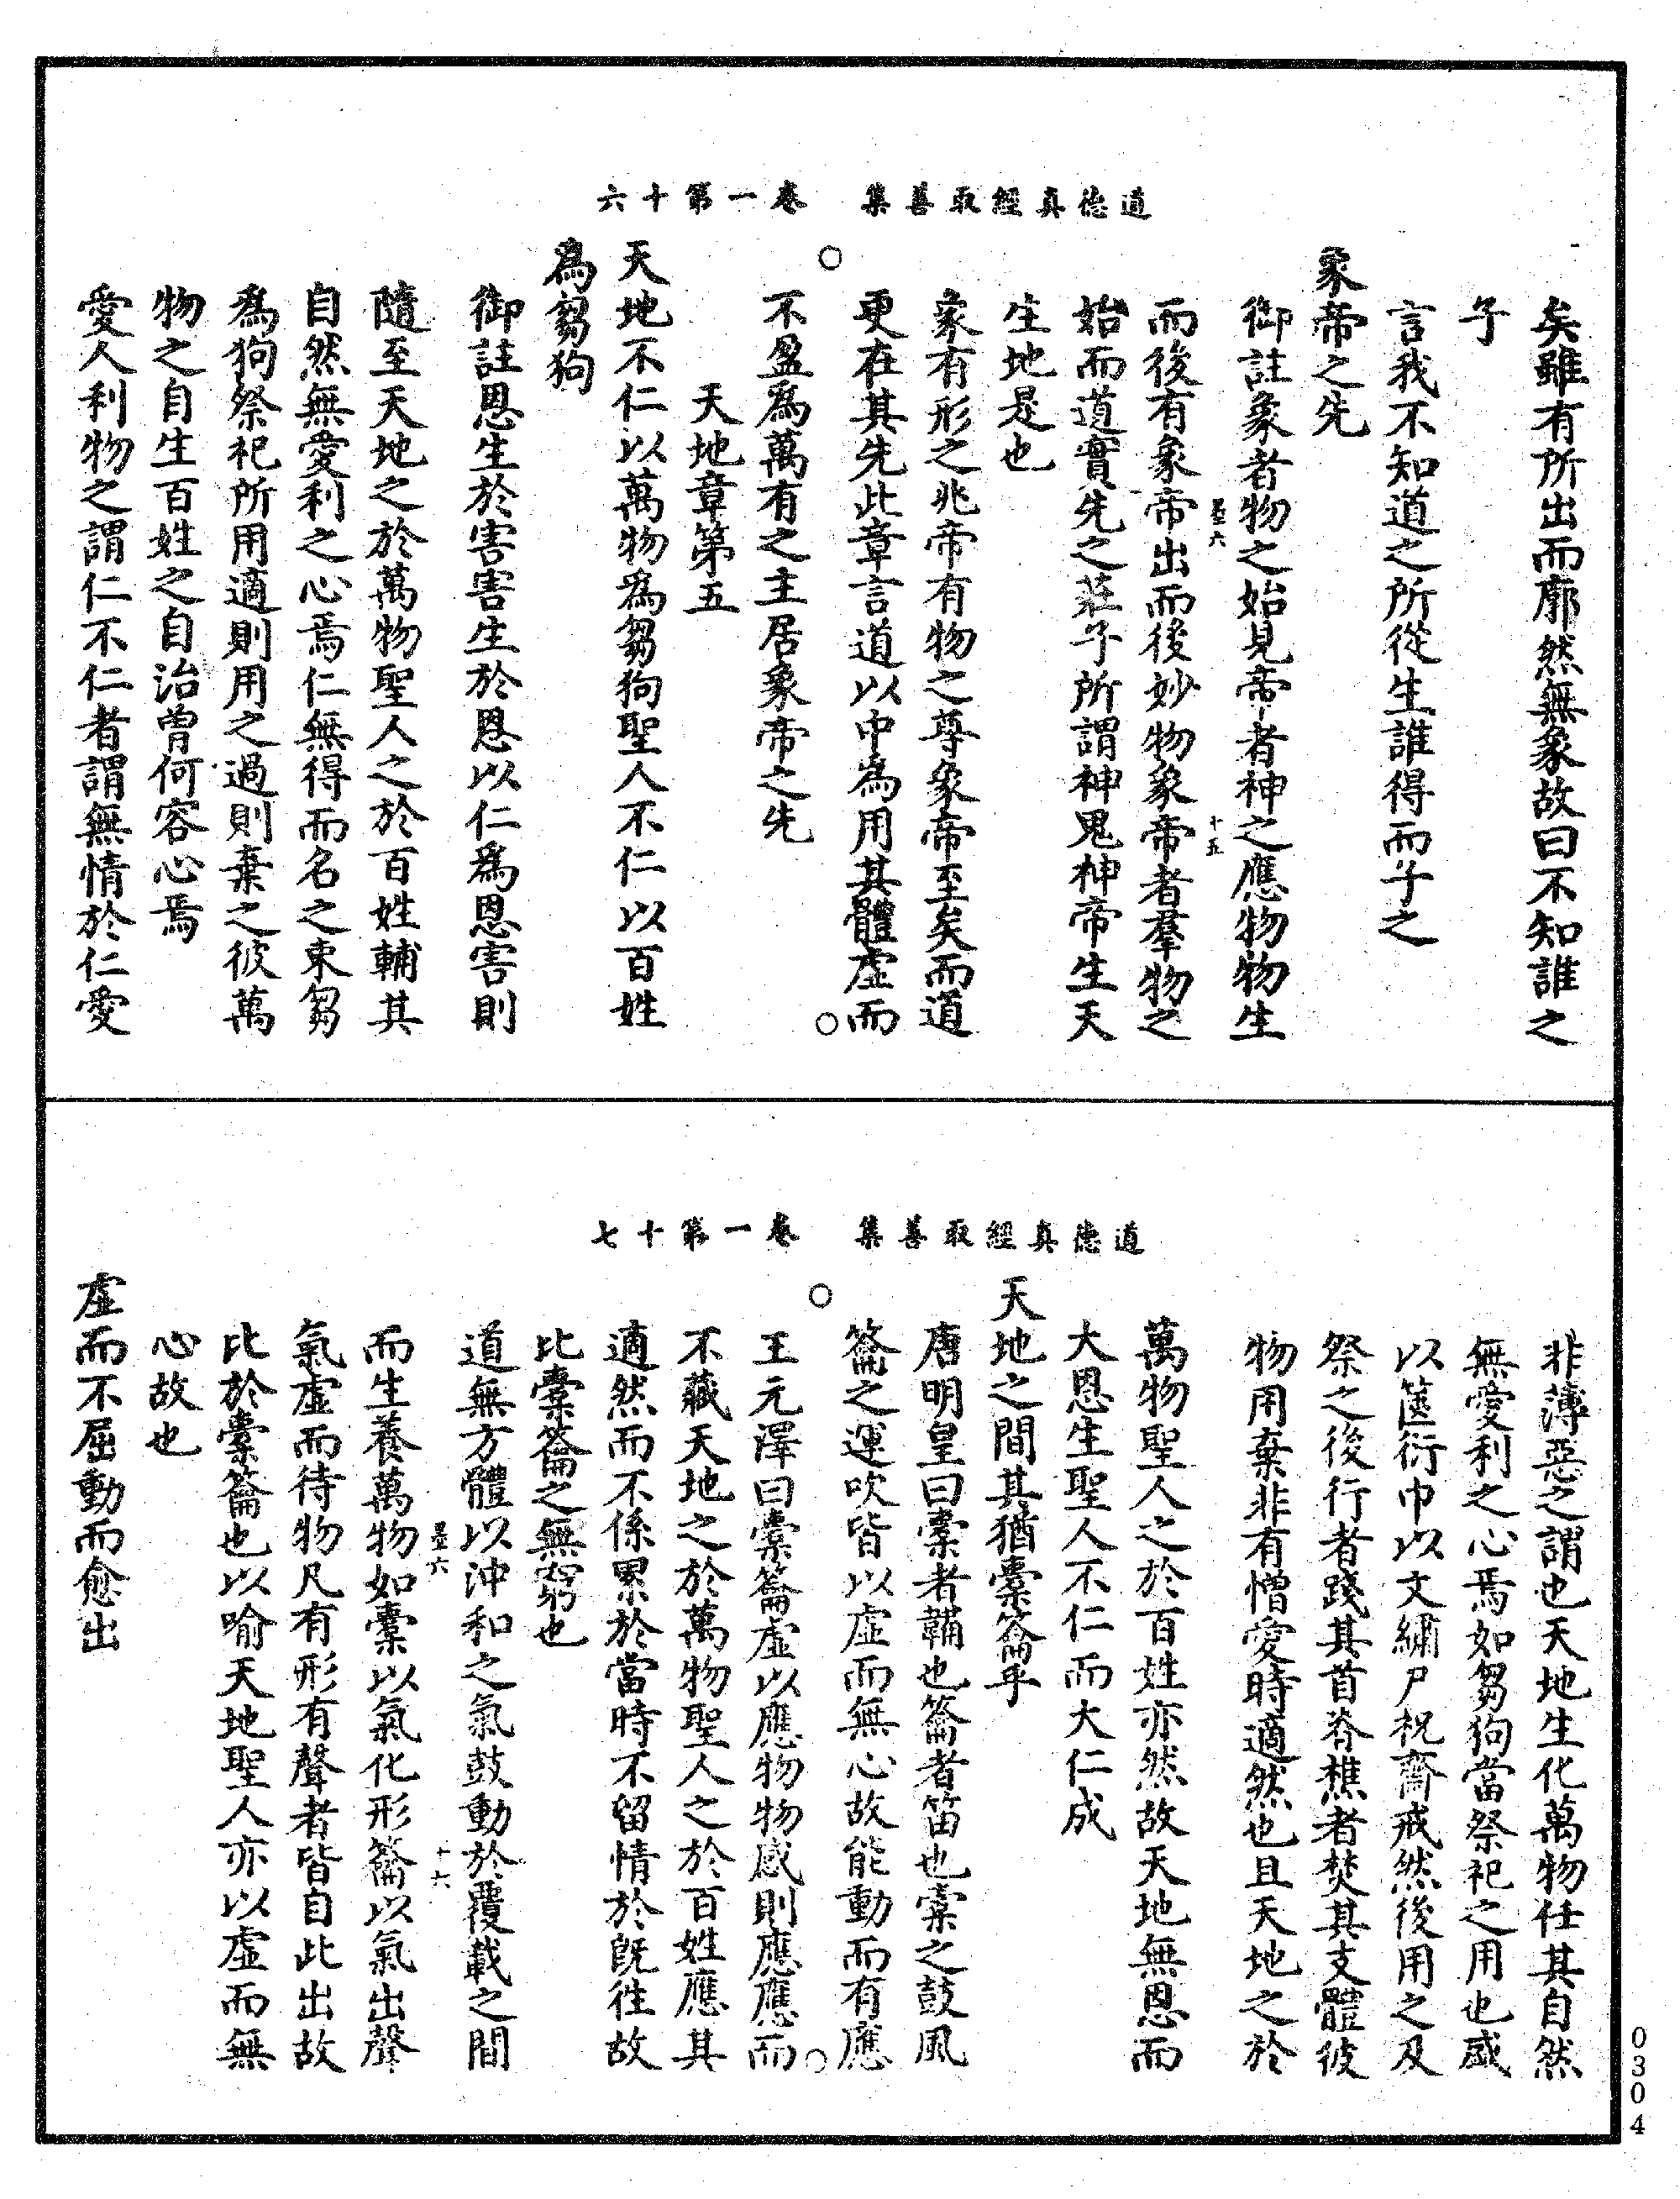 道德真經取善集　卷一第十六
矣雖有所出而廓然無象故曰不知誰之
子
言我不知道之所從生誰得而子之
象帝之先
御註象者物之始見帝者神之應物物生
墨六　十五
而後有象帝出而後妙物象帝者羣物之
始而道實先之莊子所謂神鬼神帝生天
生地是也
象有形之兆帝有物之尊象帝至矣而道
更在其先此章言道以中為用其體虛而
○　○
不盈爲萬有之主居象帝之先
天地章第五
天地不仁以萬物爲芻狗聖人不仁以百姓
為芻狗
御註恩生於害害生於恩以仁爲恩害則
隨至天地之於萬物聖人之於百姓輔其
自然無愛利之心焉仁無得而名之束芻
爲狗祭祀所用適則用之過則棄之彼萬
物之自生百姓之自治曾何容心焉
愛人利物之謂仁不仁者謂無情於仁愛
道德真經取善集　卷一第十七
非薄惡之謂也天地生化萬物任其自然
無愛利之心焉如芻狗當祭祀之用也盛
以篋衍巾以文繡尸祝齋戒然後用之及
祭之後行者踐其首脊樵者焚其支體彼
物用棄非有憎愛時適然也且天地之於
萬物聖人之於百姓亦然故天地無恩而
大恩生聖人不仁而大仁成
天地之間其猶橐籥乎
唐明皇曰橐者韛也籥者笛也橐之鼓風
籥之運吹皆以虛而無心故能動而有應
○　○
王元澤曰橐籥虛以應物物感則應應而
不藏天地之於萬物聖人之於百姓應其
適然而不係累於當時不留情於旣往故
比橐籥之無窮也
道無方體以沖和之氣鼓動於覆載之間
墨六　十六
而生養萬物如橐以氣化形籥以氣出聲
氣虛而待物凡有形有聲者皆自此出故
比於橐籥也以喻天地聖人亦以虛而無
心故也
虛而不屈動而愈出
0304